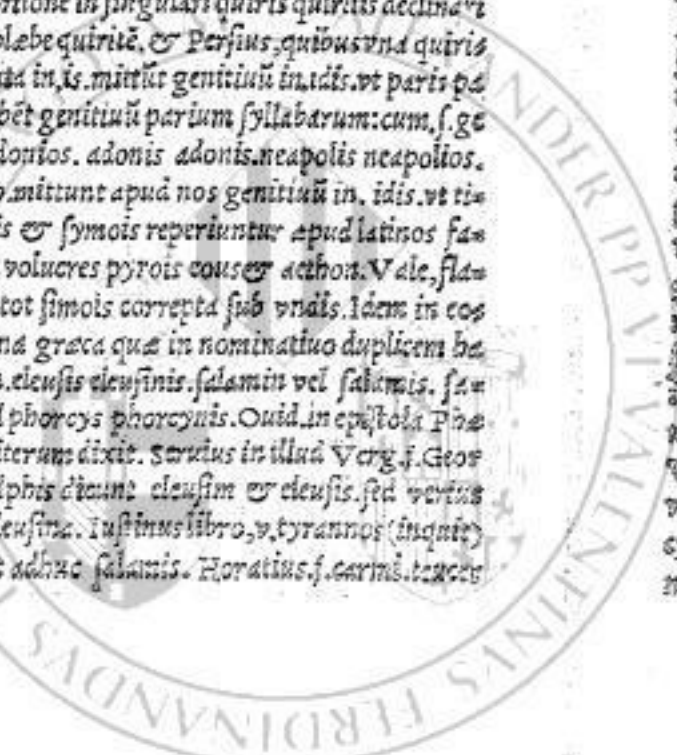 in singulari quiris quiritis declinaui
plæbe quiritē, & Persius, quibus vna quiris
ta in, is. mittūt genitiuū in. idis. vt paris pa
bēt genitiuū parium syllabarum: cum. s. ge
donios. adonis adonis. neapolis neapolios.
o. mittunt apud nos genitiuū in. idis. vt ti=
is & symois reperiuntur apud latinos fa=
volucres pyrois eous & aethon. Vale, fla=
tot simois correpta sub vndis. Idem in eo=
na græca quæ in nominatiuo duplicem ha
. eleusis eleusinis. salamin vel salamis. sa=
l phorcys phorcynis. Ouid. in epistola Phæ
iterum dixit. Seruius in illud Verg. j. Geor
lphis dicunt eleusim & eleusis. sed verius
leusina. Iustinus libro, v. tyrannos (inquit)
t adhuc salamis. Horatius. j. carmi. teucer
ANDER PP VI VALENTINVS FERDINANDVS